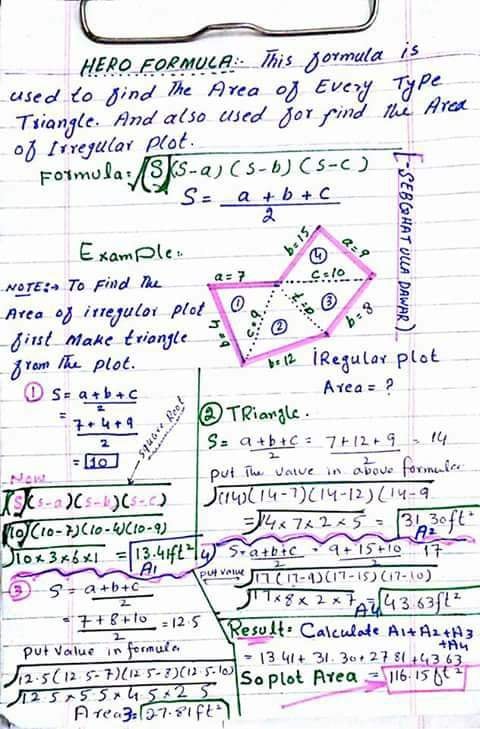 HERO FORMULA:- This formula is
used to find the Area of Every Type
Triangle. And also used for find the Area
of Irregular Plot.
Formula: √(S)(S-a)(S-b)(S-c)
S = a + b + c
2
(-SEBGHAT ULLA DAWAR)
Example:-
NOTE:→ To Find the
Area of irregular plot
first make triangle
from the plot.
a = 7
b = 15
a = 9
④
c = 10
①
c = 9
②
a = 7
③
b = 8
b = 12
iRegular plot
Area = ?
① S = a + b + c
2
= 7 + 4 + 9
2
= 10
square Root
Now
√(S)(s-a)(s-b)(s-c)
√10(10-7)(10-4)(10-9)
√10 x 3 x 6 x 1 = 13.41ft²
A1
② TRiangle.
S = a+b+c = 7+12+9 = 14
2 2
put the value in above formula
√(14)(14-7)(14-12)(14-9
= √14 x 7 x 2 x 5 = 31.30ft²
A2
③ S = a+b+c
2
= 7+8+10 = 12.5
2
put value in formula
√12.5(12.5-7)(12.5-8)(12.5-10)
√12.5 x 5.5 x 4.5 x 2.5
Area 3 = 27.81ft²
4) S = a+b+c = 9+15+10 17
2 2
put value √17(17-9)(17-15)(17-10)
√17 x 8 x 2 x 7 = 43.63ft²
A4
Result = Calculate A1+A2+A3
+A4
= 13.41 + 31.30 + 27.81 + 43.63
So plot Area = 116.15ft²